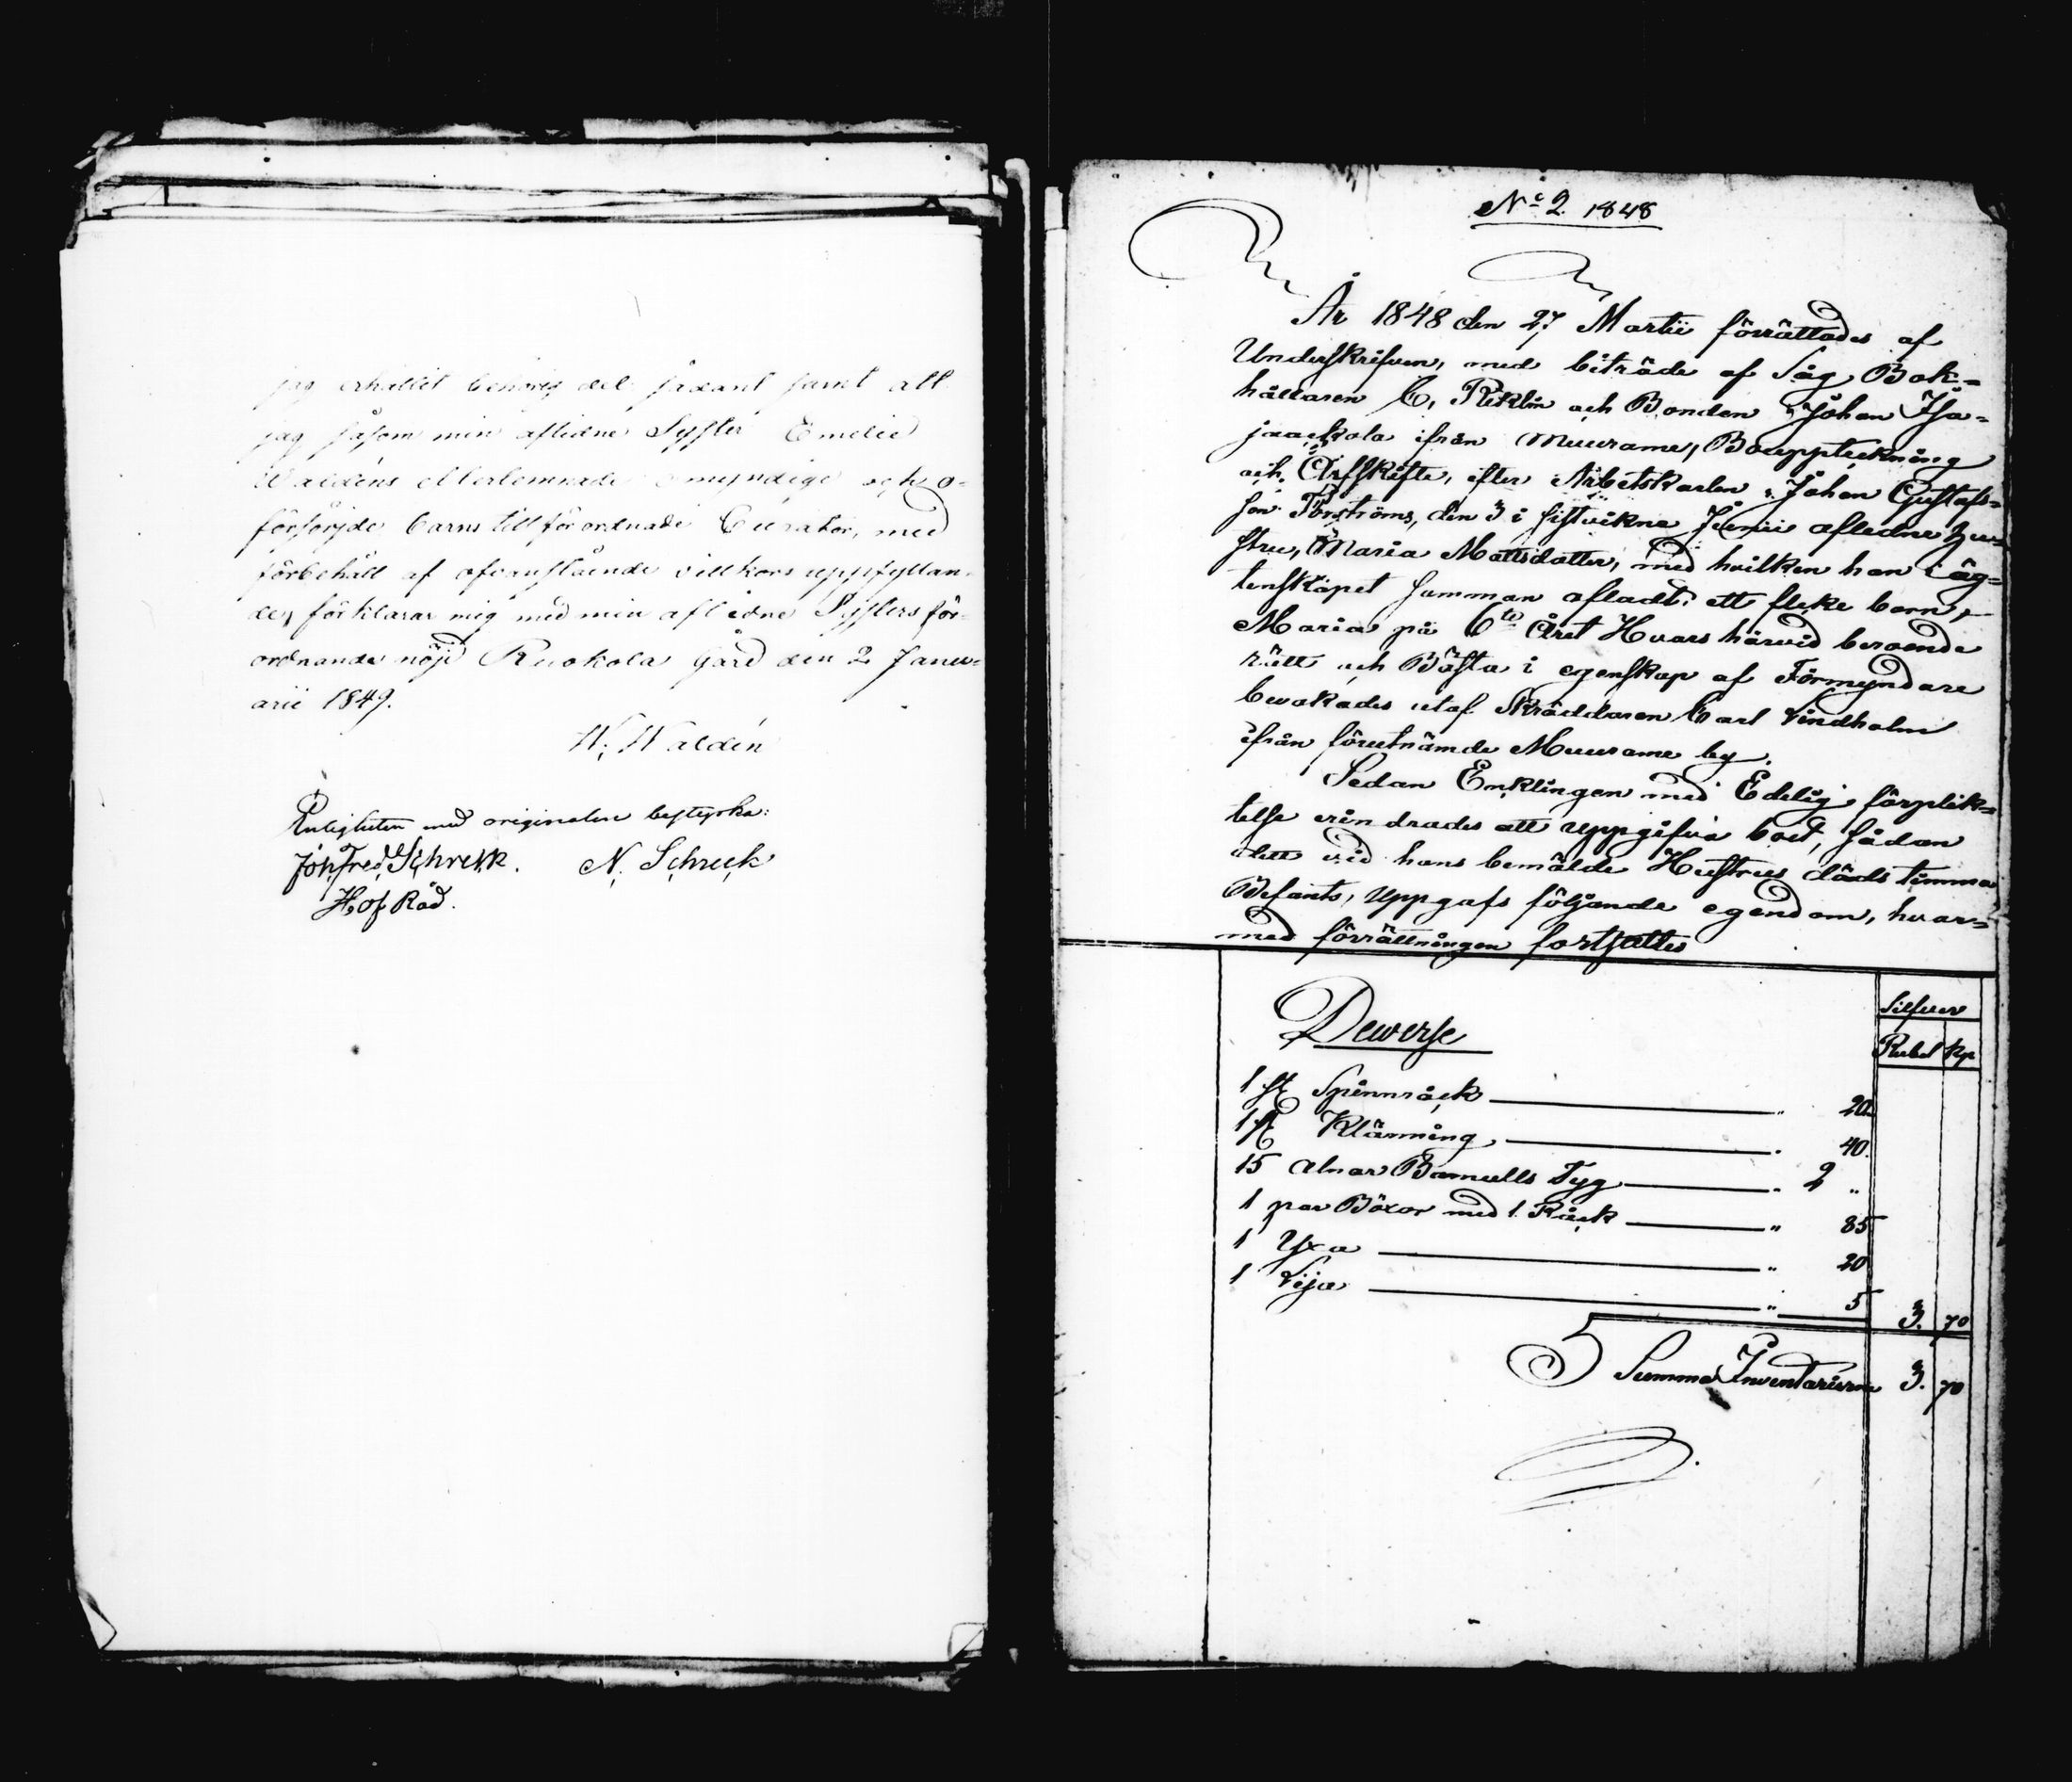 jag erhållit benöig del sådant samt att
jag såsom min aflidne Syster Emelie
Waldéns efterlemnade omyndige och o-
försörjde barns tillförordnade Curator, med
förbehåll af ofvanstående villkors uppfyllan-
de, förklarar mig med min aflidne Systers för-
ordnande nöjd Ruokola Gård den 2 Janu-
arii 1849.
W. Waldén
Enligheten med originalen bestyrka:
Joh. Fred. Schreck. N. Schreck
H. of Råd.
No 2 1848
År 1848 den 27 Martii förrättades af
Underskrifven, med biträde af Såg Bok-
hållaren C. Reklin och Bonden Johan Isa-
jaackola ifrån Muurame, Bouppteckning
och Arfskifte, efter Arbetskarlen Johan Gustafs-
son Forströms, den 3 i sistvikne Junii afledne hu-
stru, Maria Mattsdotter, med hvilken han i äg-
tenskapet samman afladt ett fleke barn,
Maria på 6te Året Hvars härvid beroende
rätt och Bästa i egenskap af Förmyndare
bevakades utaf Skräddaren Carl Lindholm
ifrån förutnämde Muurame by.
Sedan Enklingen med Edelig förplik-
telse erindrades att uppgifva boet, sådan
dett vid hans bemälde Hustrus döds timma
Befants, uppgafs följande egendom, hvar-
med förrättningen fortsattes
Silfver
Dewerse
Rubel Kp
1 st Spinnråck " 20.
1 st Klänning . 40.
15 alnar Bomulls Tyg . 2 "
1 par Böxor med 1 Råck " 85
1 Yxa " 20
1 Lija " 5 3. 70
Summa Inventarium 3. 70